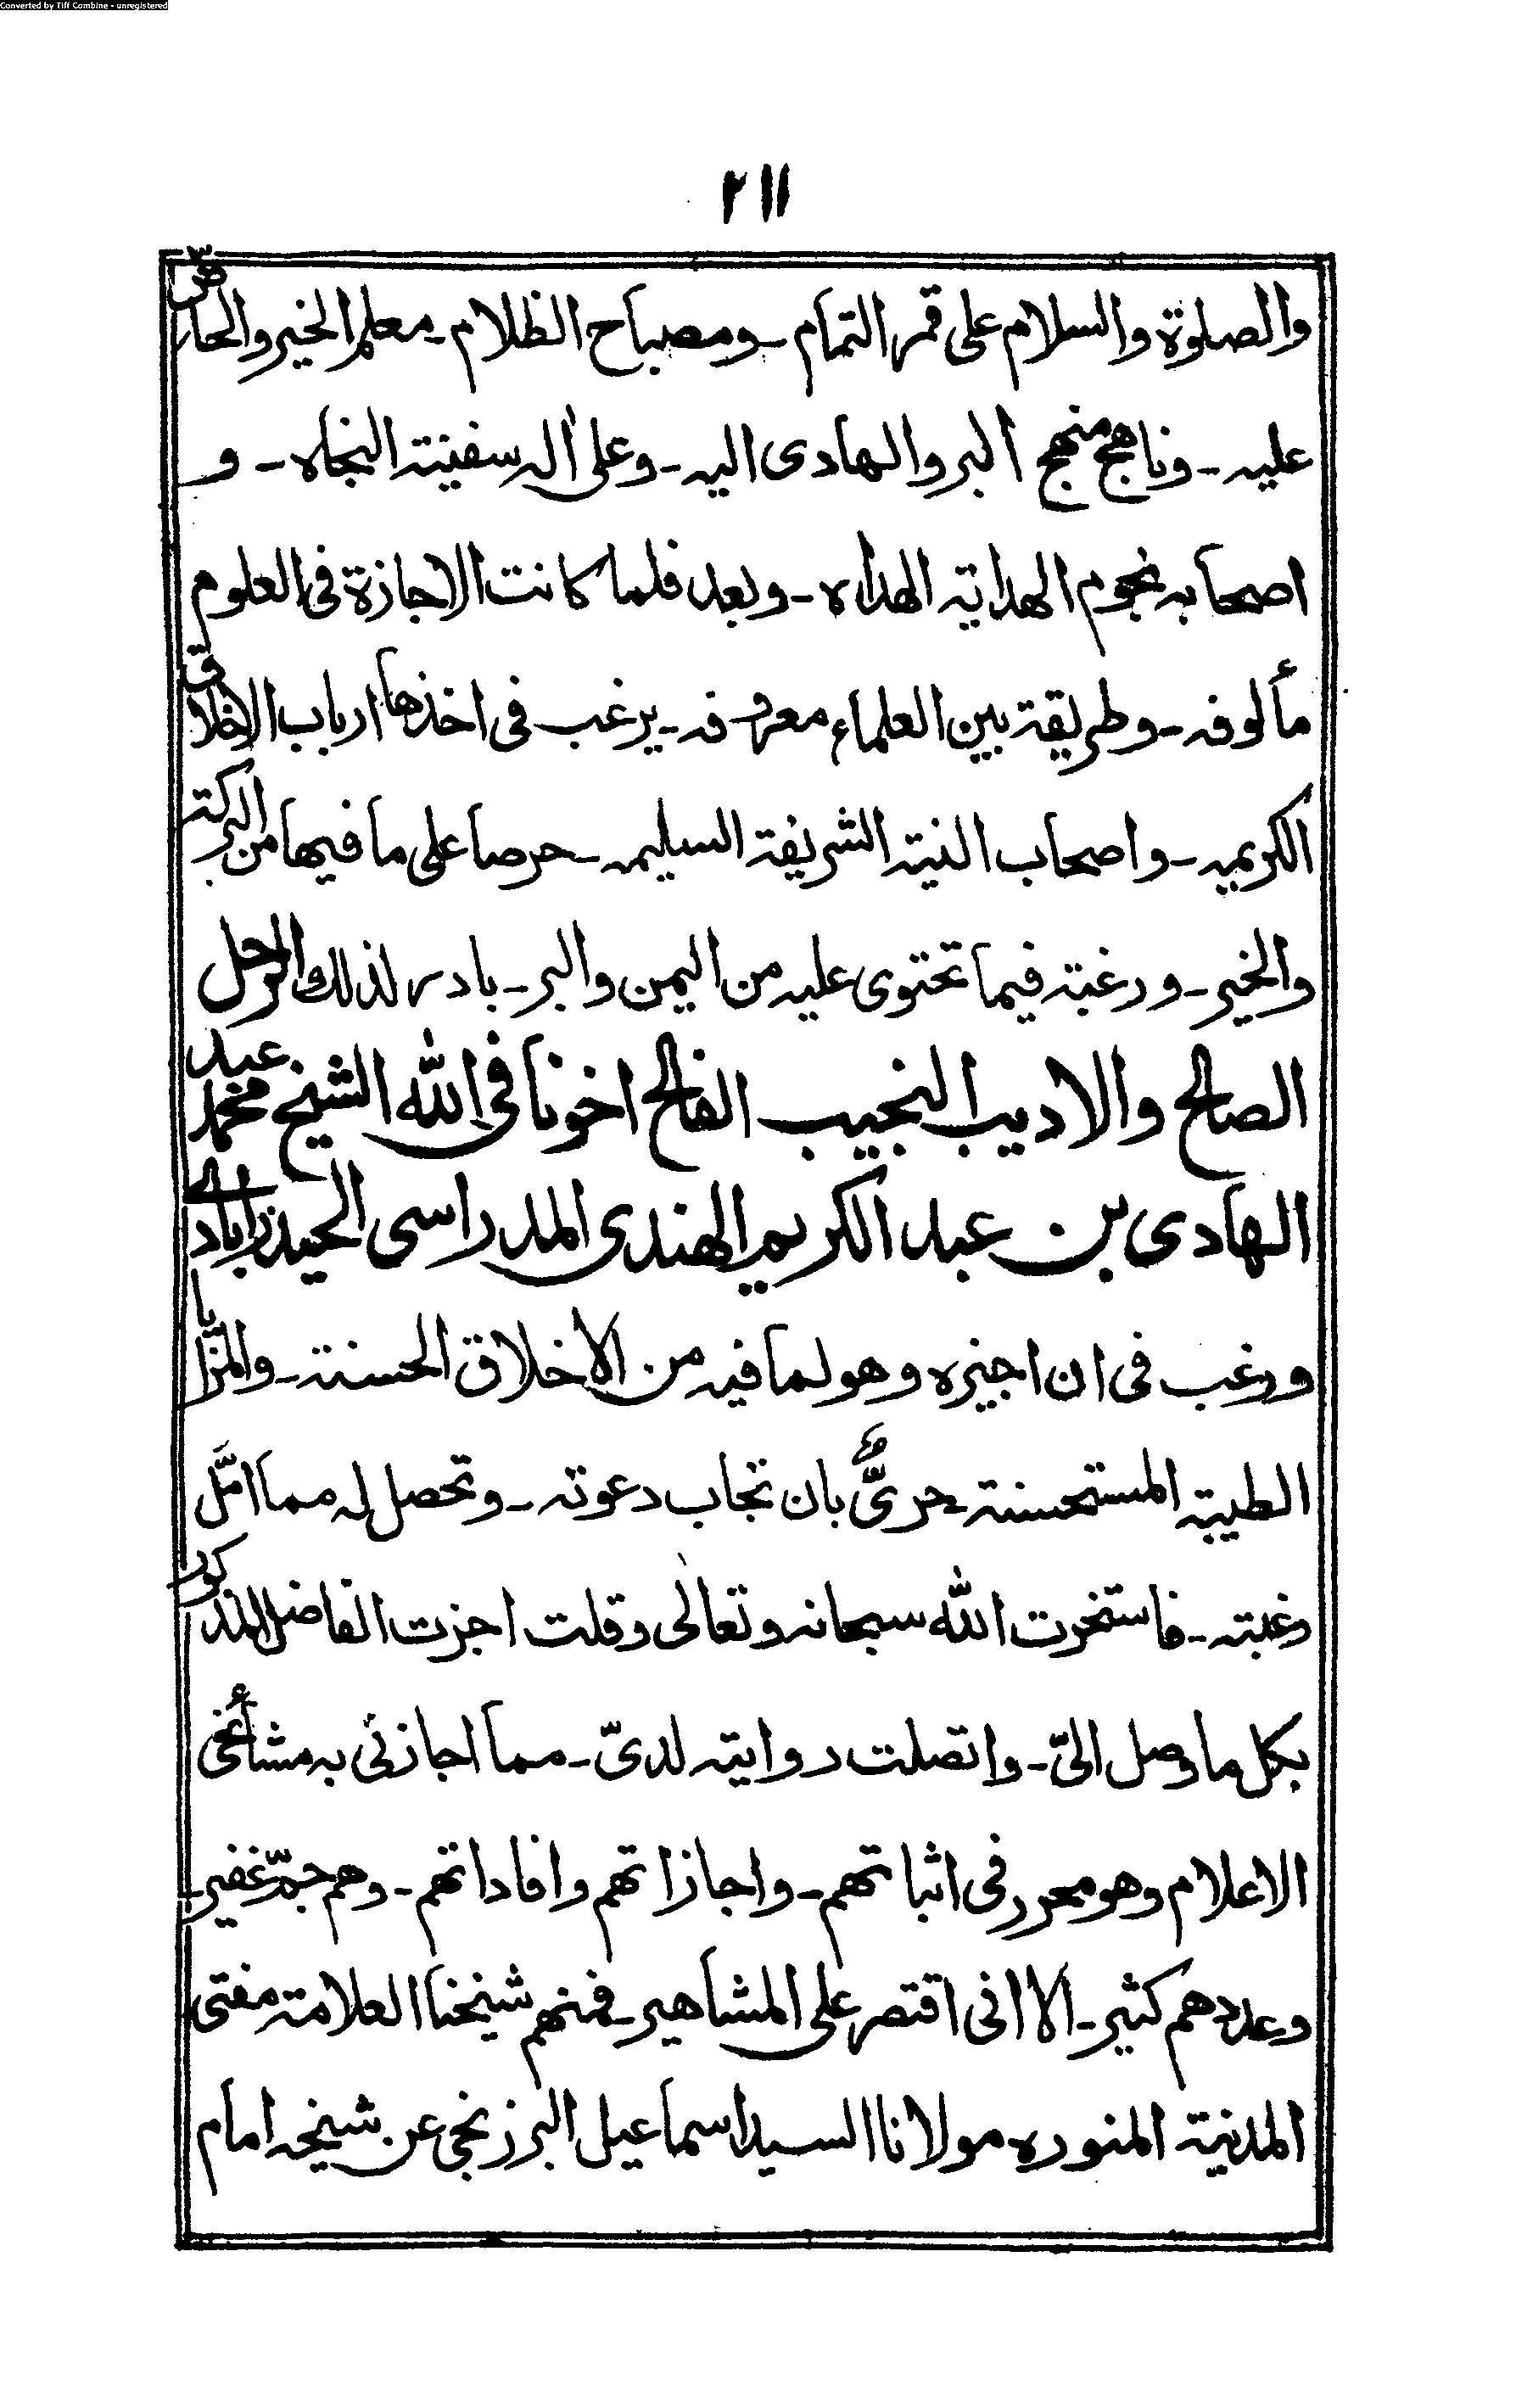 Converted by Tiff Combine - unregistered
٢١١
والصلوة والسلام على قمر التمام ـ ومصباح الظلام ـ معلم الخير والحاضّ
عليه ـ وناهج منهج البر والهادى اليه ـ وعلى اٰله سفينة النجاه ـ و
اصحابه نجوم الهداية الهداه ـ وبعد فلما كانت الاجازة فى العلوم
مألوفه ـ وطريقة بين العلماء معروفه ـ يرغب فى اخذها ارباب الاخلاق
الكريمه ـ واصحاب النية الشريفة السليمه ـ حرصا على ما فيها من البركة
والخير ـ ورغبة فيما تحتوى عليه من اليمن والبر ـ بادر لذلك الرجل
الصالح والاديب النجيب الفالح اخونا فى الله الشيخ محمد عبد
الهادى بن عبد الكريم الهندى المدراسى الحيدرابادى
ورغب فى ان اجيزه وهو لما فيه من الاخلاق الحسنة ـ والمزايا
الطيبة المستحسنة ـ حرىٌّ بان تجاب دعوته ـ وتحصل له مما امّل
رغبته ـ فاستخرت الله سبحانه وتعالى وقلت اجزت الفاضل المذكور
بكل ما وصل الىّ ـ واتصلت روايته لدىّ ـ مما اجازنى به مشائخى
الاعلام وهو محرر فى اثباتهم ـ واجازاتهم وافاداتهم ـ وهم جمّ غفير ـ
وعددهم كثير ـ الا انى اقتصر على المشاهير ـ فمنهم شيخنا العلامة مفتى
المدينة المنوره مولانا السيد اسماعيل البرزنجى عن شيخه امام